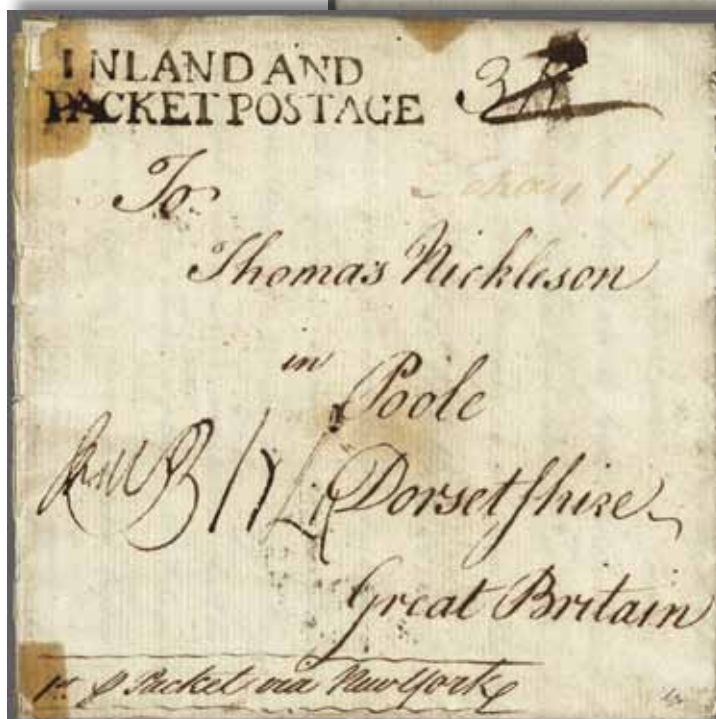 INLAND AND
PACKET POSTAGE
To
Thomas Nickleson
in
Poole
Dorsetshire
Great Britain
Packet via New York